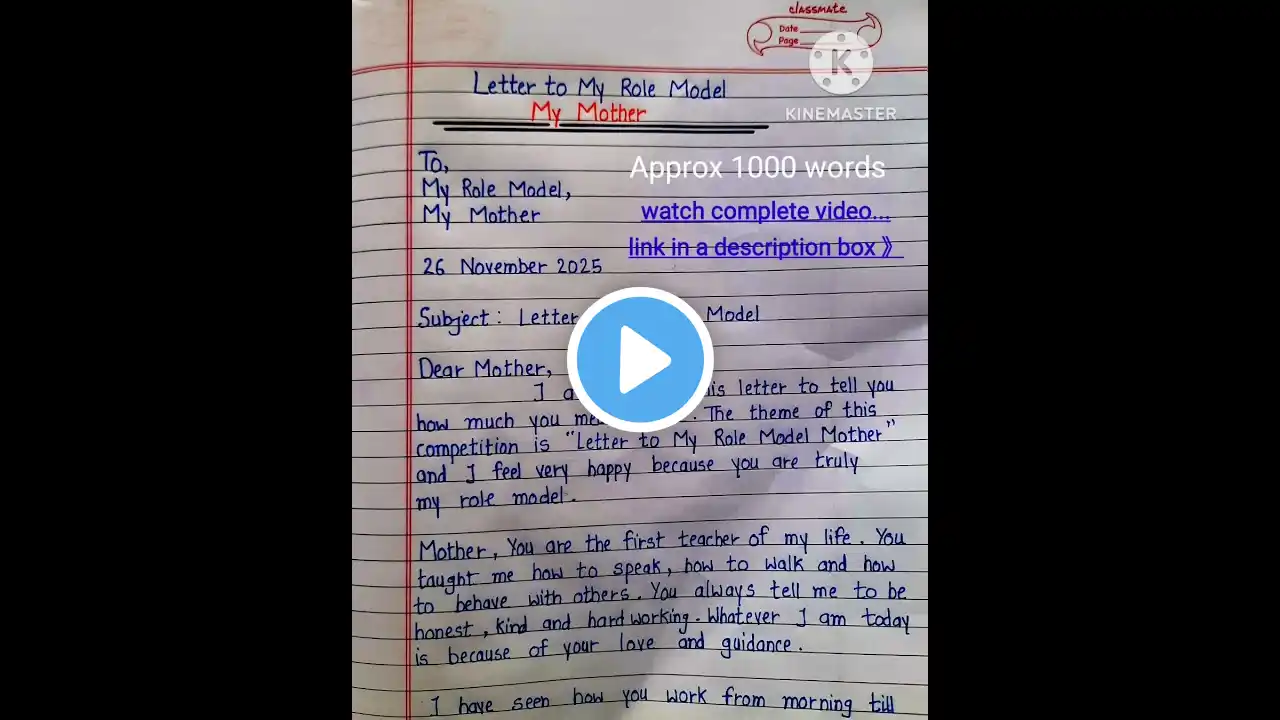 classmate
Date
Page
K
KINEMASTER
Letter to My Role Model
My Mother
Approx 1000 words
To,
My Role Model,
watch complete video...
My Mother
link in a description box 》
26 November 2025
Subject : Letter Model
Dear Mother,
I letter to tell you
how much you . The theme of this
competition is "Letter to My Role Model Mother"
and I feel very happy because you are truly
my role model.
Mother, You are the first teacher of my life. You
taught me how to speak, how to walk and how
to behave with others. You always tell me to be
honest, kind and hard working. Whatever I am today
is because of your love and guidance.
I have seen how you work from morning till